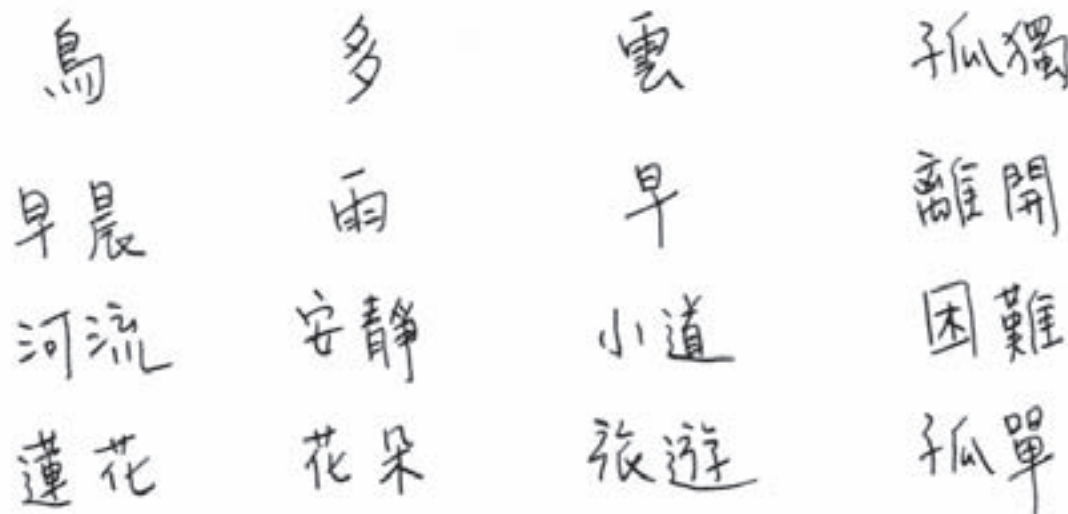 鳥 多 雲 孤獨
早晨 雨 早 離開
河流 安靜 小道 困難
蓮花 花朵 旅遊 孤單